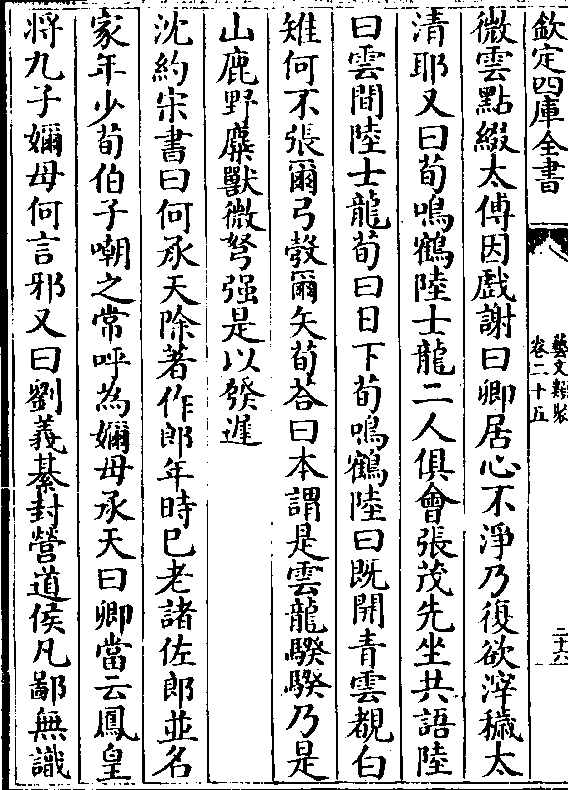 欽定四庫全書
藝文類聚
卷二十五
二十六
微雲點綴太傅因戲謝曰卿居心不淨乃復欲滓穢太
清耶又曰荀鳴鶴陸士龍二人俱會張茂先坐共語陸
曰雲間陸士龍荀曰日下荀鳴鶴陸曰既開青雲覩白
雉何不張爾弓敎爾矢荀荅曰本謂是雲龍騤騤乃是
山鹿野麋獸微弩强是以發遲
沈約宋書曰何承天除著作郎年時已老諸佐郎並名
家年少荀伯子嘲之常呼為嬭母承天曰卿當云鳳皇
将九子嬭母何言邪又曰劉義綦封營道侯凡鄙無識